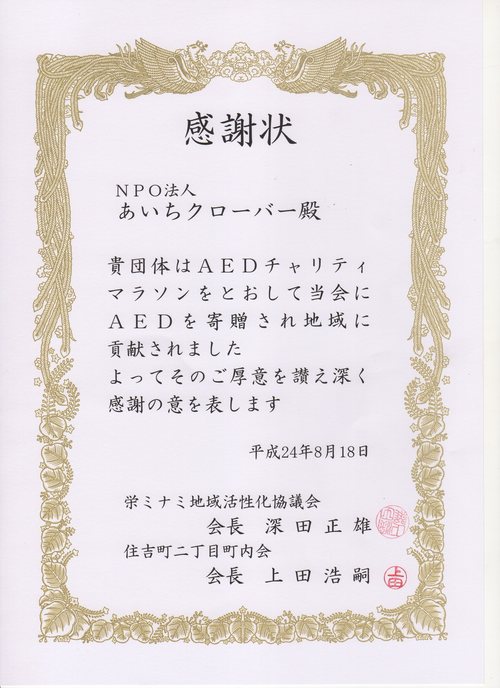 感謝状
NPO法人
あいちクローバー殿
貴団体はAEDチャリティ
マラソンをとおして当会に
AEDを寄贈され地域に
貢献されました
よってそのご厚意を讃え深く
感謝の意を表します
平成24年8月18日
栄ミナミ地域活性化協議会
会長 深田正雄
住吉町二丁目町内会
会長 上田浩嗣
上田